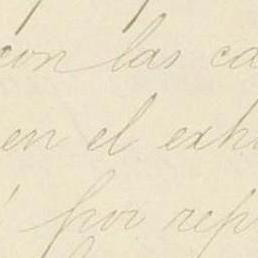 con las ca
en el exh
por rep